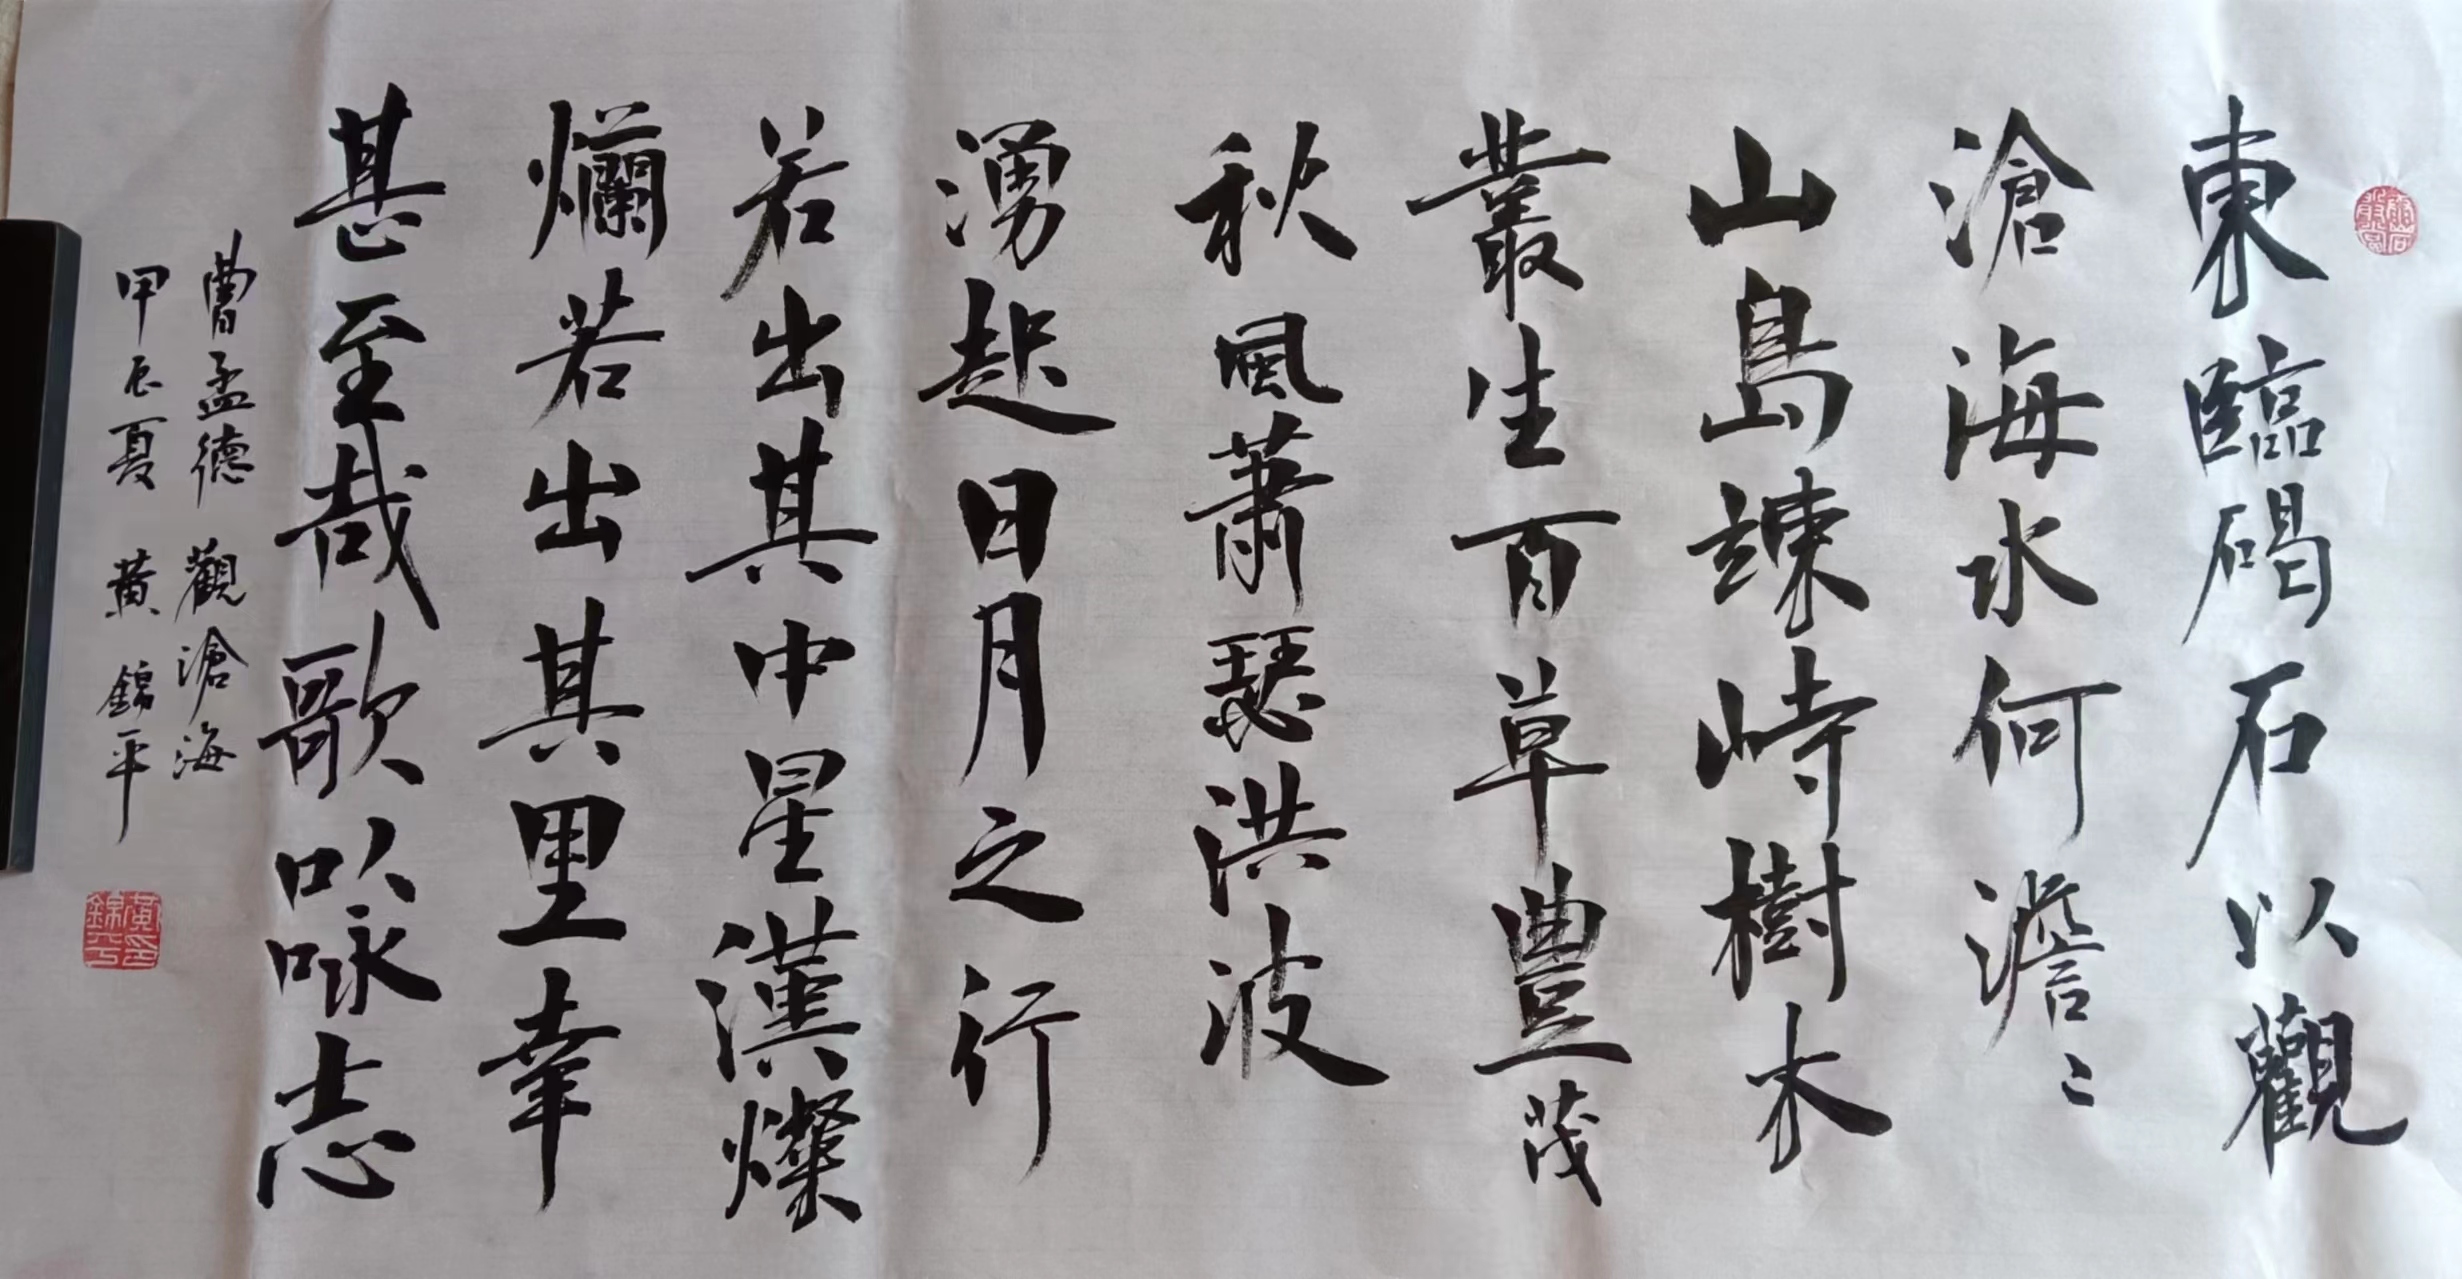 東臨碣石以觀
滄海水何澹〻
山島竦峙樹木
叢生百草豊茂
秋風蕭瑟洪波
湧起日月之行
若出其中星漢燦
爛若出其里幸
甚至哉歌以咏志
曹孟德 觀滄海
甲辰夏 黃錦平
黃錦平印